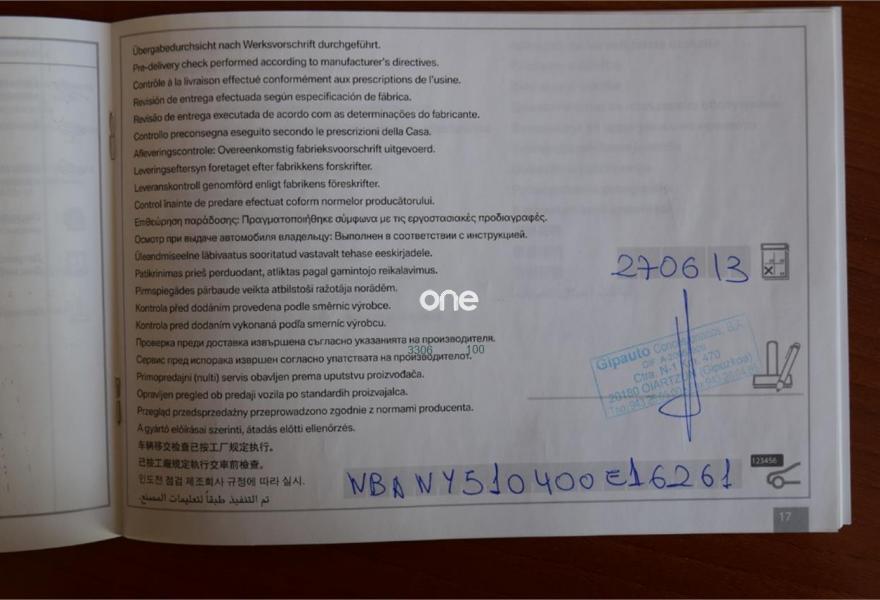 Übergabedurchsicht nach Werksvorschrift durchgeführt.
Pre-delivery check performed according to manufacturer's directives.
Contrôle à la livraison effectué conformément aux prescriptions de l'usine.
Revisión de entrega efectuada según especificación de fábrica.
Revisão de entrega executada de acordo com as determinações do fabricante.
Controllo preconsegna eseguito secondo le prescrizioni della Casa.
Afleveringscontrole: Overeenkomstig fabrieksvoorschrift uitgevoerd.
Leveringseftersyn foretaget efter fabrikkens forskrifter.
Leveranskontroll genomförd enligt fabrikens föreskrifter.
Control înainte de predare efectuat coform normelor producătorului.
Επιθεώρηση παράδοσης: Πραγματοποιήθηκε σύμφωνα με τις εργοστασιακές προδιαγραφές.
Осмотр при выдаче автомобиля владельцу: Выполнен в соответствии с инструкцией.
Üleandmiseelne läbivaatus sooritatud vastavalt tehase eeskirjadele.
270613
Patikrinimas prieš perduodant, atliktas pagal gamintojo reikalavimus.
Pirmspiegādes pārbaude veikta atbilstoši ražotāja norādēm.
one
Kontrola před dodáním provedena podle směrnic výrobce.
Kontrola pred dodaním vykonaná podľa smerníc výrobcu.
Проверка преди доставка извършена съгласно указанията на производителя.
3306 100
Сервис пред испорака извршен согласно упатствата на производителот.
Gipauto Concesionarios, S.A.
Ctra. N-1 470
20180 OIARTZUN (Gipuzkoa)
Primopredajni (nulti) servis obavljen prema uputstvu proizvođača.
Opravljen pregled ob predaji vozila po standardih proizvajalca.
Przegląd przedsprzedażny przeprowadzono zgodnie z normami producenta.
A gyártó előírásai szerinti, átadás előtti ellenőrzés.
车辆移交检查已按工厂规定执行。
已按工廠規定執行交車前檢查。
123456
인도전 점검 제조회사 규정에 따라 실시.
WBANY510400E16261
تم التنفيذ طبقاً لتعليمات المصنع.
17